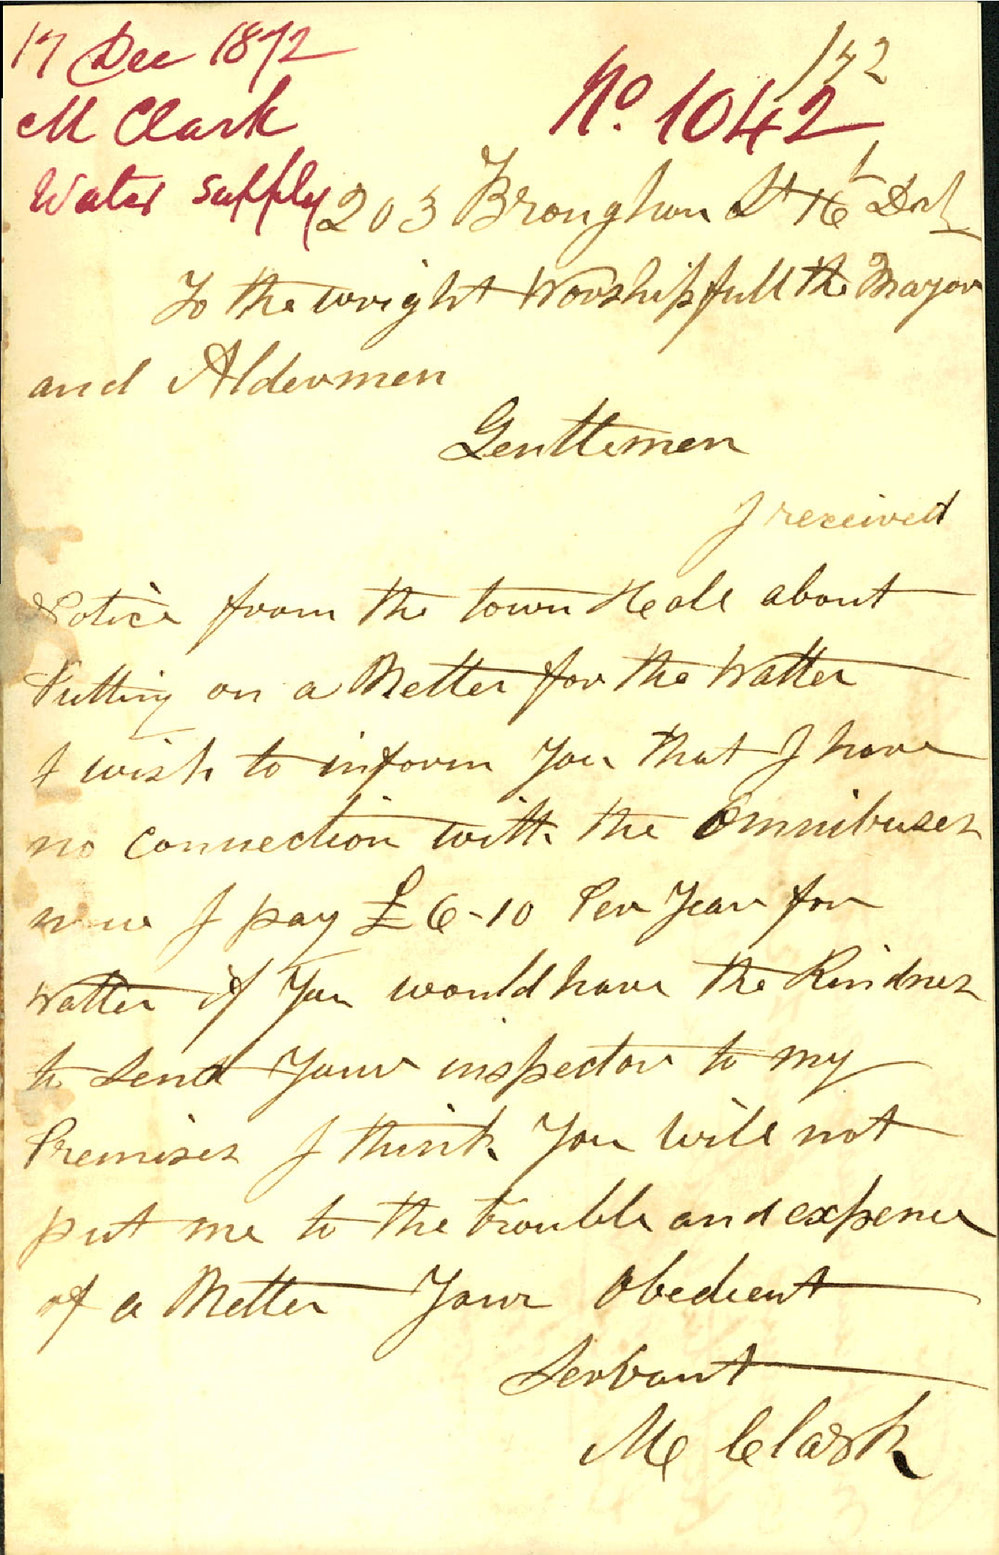 17 Dec 1872
M Clark
Water supply
142
No. 1042
203 Broughan St 16th Dec
To the wright Worshipfull the Mayor
and Aldermen
Gentlemen
I received
Notice from the town Heall about
Putting on a Metter for the Watter
I wish to inform You that I have
no connection with the Omnibuses
now I pay £6-10 Per Year for
Watter if You would have the Kindness
to Send Your inspector to my
Premises I think You will not
put me to the trouble and expence
of a Metter Your Obedient
Servant
M Clark